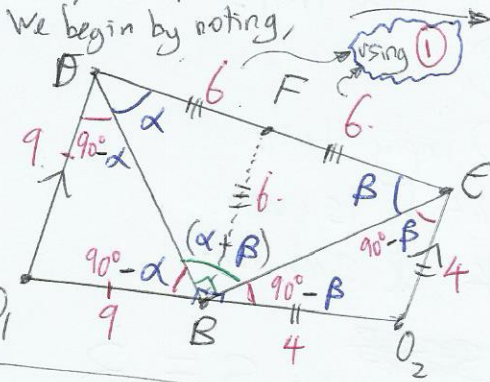 We begin by noting,
using ①
D 6 F
α 6
9 90°-α
β C
6
(α+β) 90°-β
90°-α 4
90°-β
O₁ 9 B 4 O₂